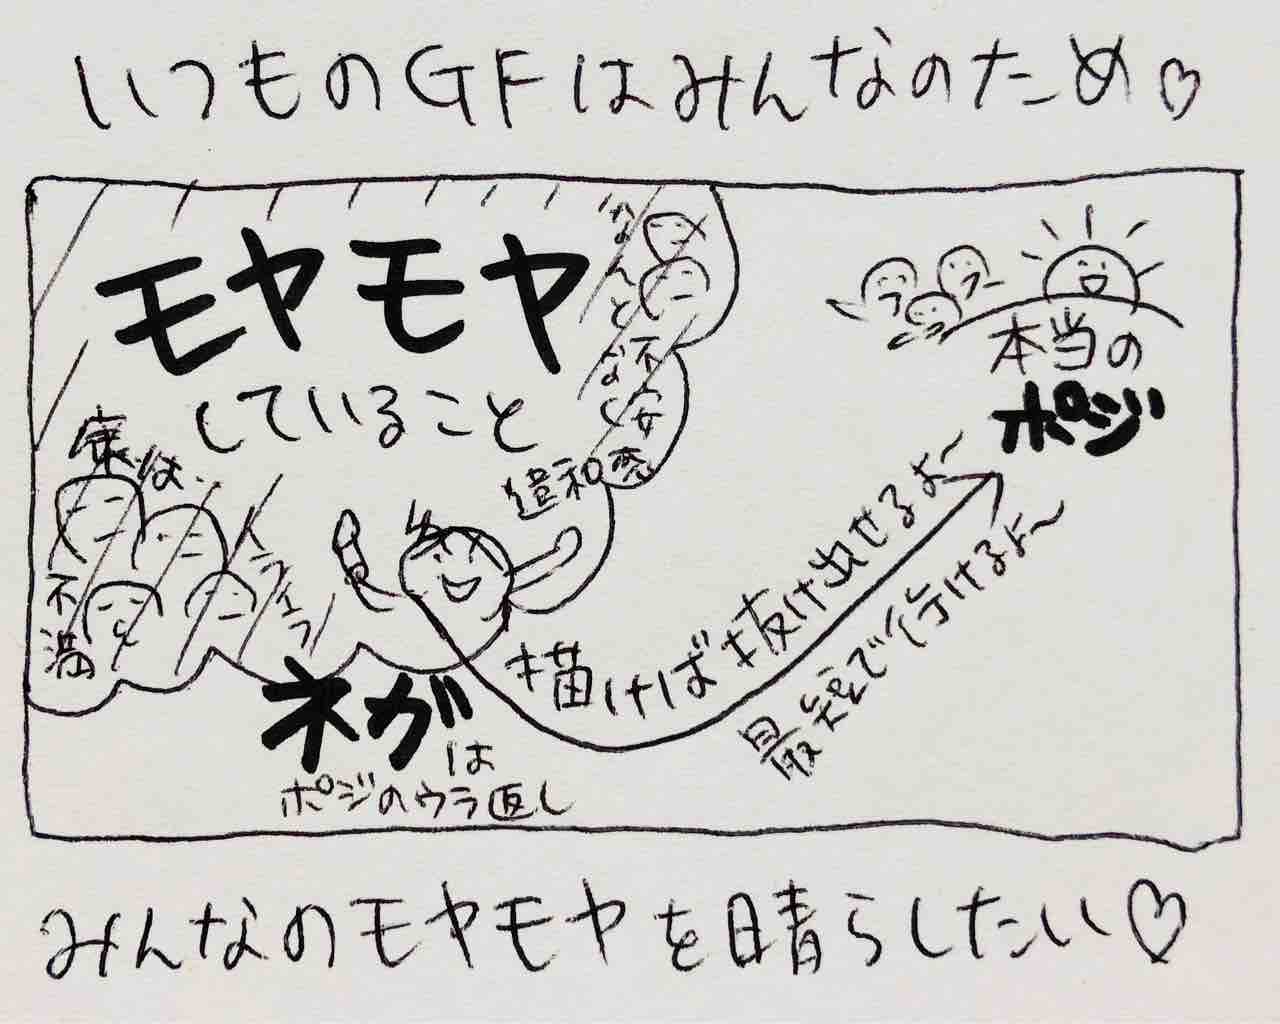 いつものGFはみんなのため♡
モヤモヤ
していること
なんとなく
不安
違和感
実は、
不満
イライラ
本当の
ポジ
描けば抜け出せるよ〜
最短で行けるよ〜
ネガは
ポジのウラ返し
みんなのモヤモヤを晴らしたい♡